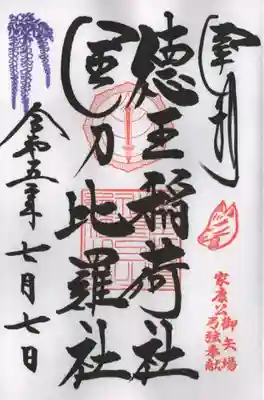 徳王稲荷社
金刀比羅社
令和五年七月七日
家康公御矢場
弓弦奉献